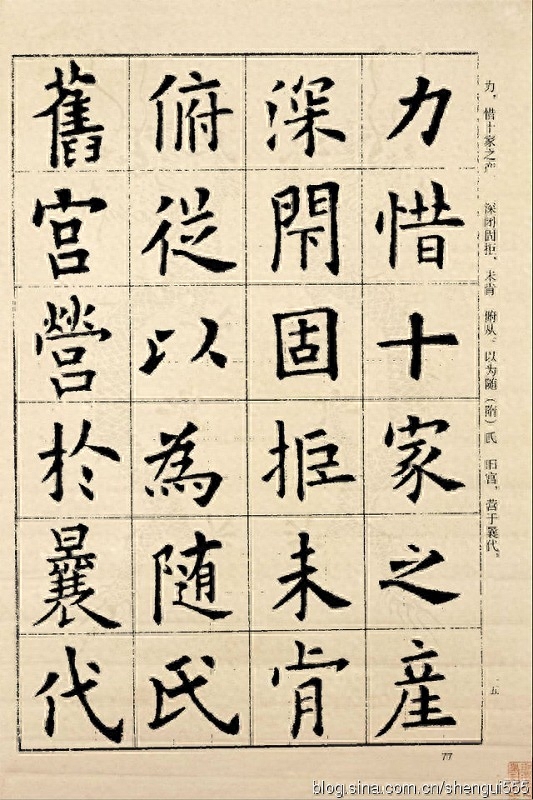 力惜十家之產
深閇固拒未肯
俯從以為随氏
舊宮營於曩代
力，惜十家之产 深闭固拒，未肯 俯从。以为随（隋）氏 旧宫，营于曩代。
五
77
blog.sina.com.cn/shengui555